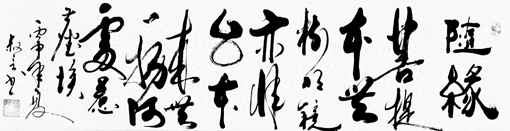 隨緣
菩提
本無
樹明鏡
亦非
台本
來無
一物何
處惹
塵埃